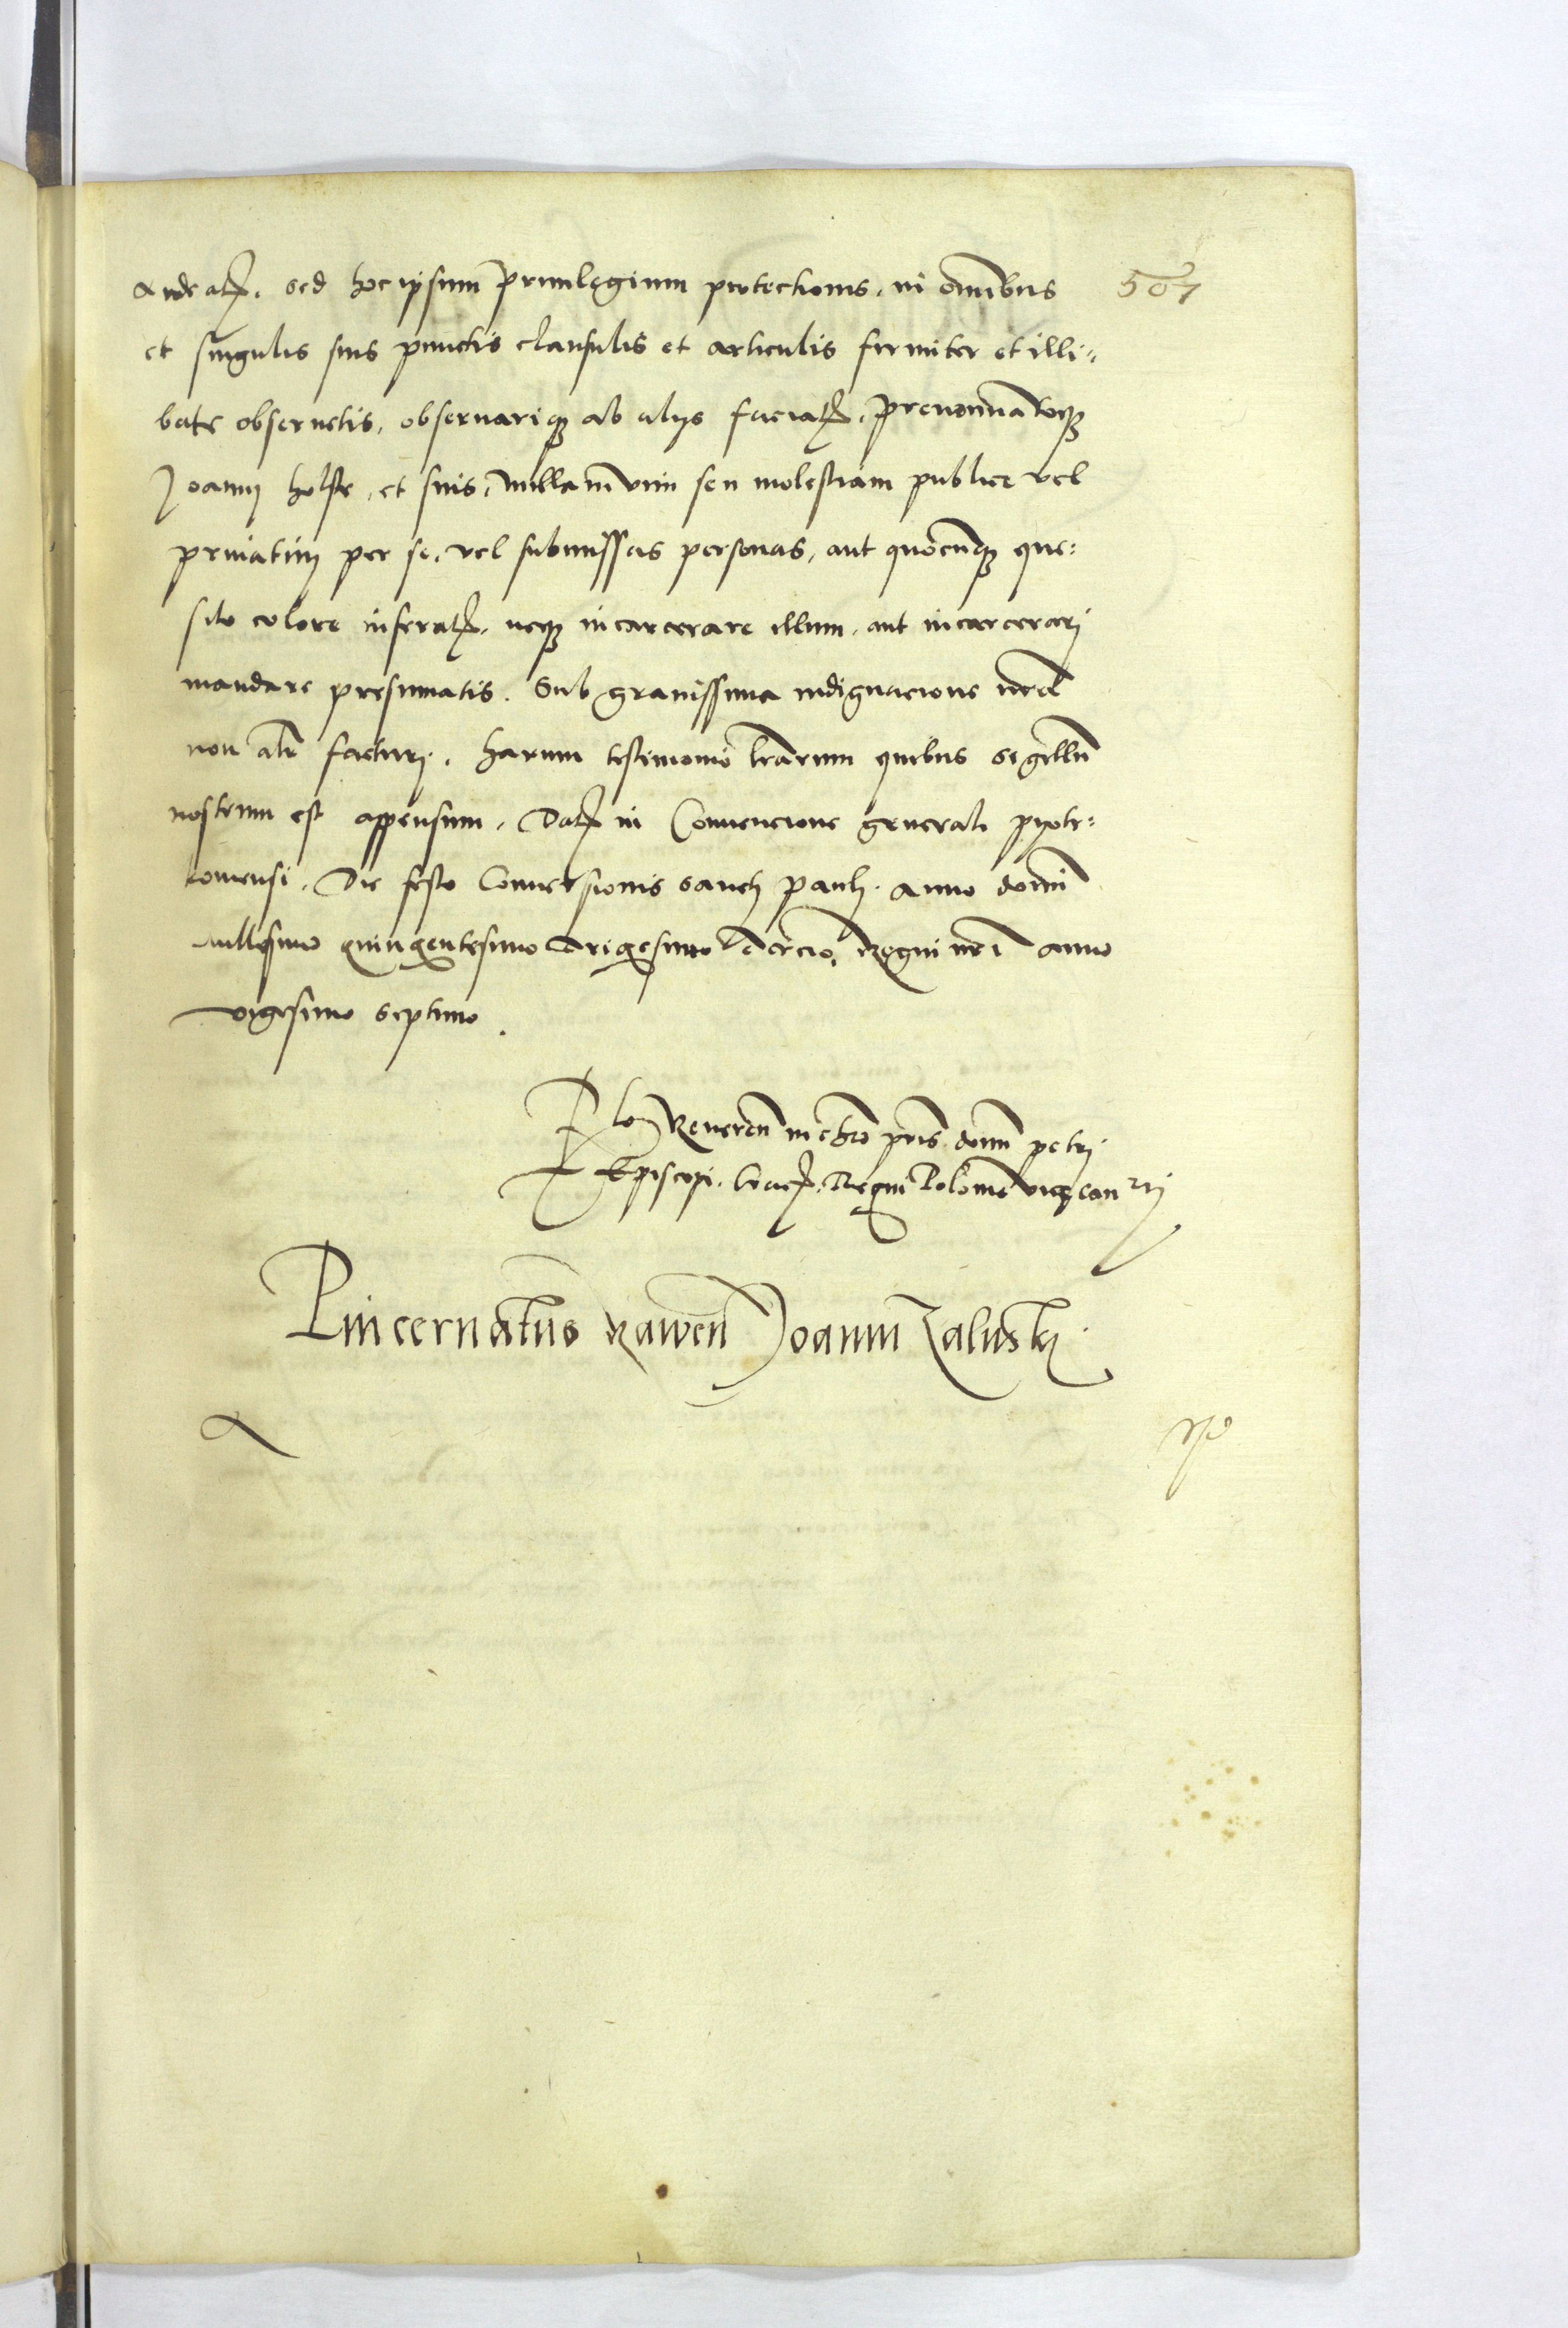 audeatꝭ. sed hoc ipsum priuilegium protectionis, in omībus 507
et singulis suis punctis clausulis et articulis firmiter et illi-
bate obseruetis, obseruariqꝫ ab alijs faciatꝭ. prenominatoqꝫ
Joanni holste, et suis, nullam vim seu molestiam publice vel
priuatim per se, vel submissas personas, aut quocunqꝫ que-
sito colore inferatꝭ. neqꝫ incarcerare illum, aut incarcerari
mandare presumatis. Sub grauissima indignacione nrā
non alr̄ facturi. Harum testimonio lrārum quibus sigillū
nostrum est appensum. Datꝭ in Conuencione generali pyotr-
couiensi. Die festo Conuersionis sancti pauli. Anno domī
millesimo quingentesimo Trigesimo Tercio. Regni nrī anno
vigesimo septimo.
Rlo Reueren̄ in chrō pris domī petri
Episcopi. Crac. Regni Polonie vicecan rij
Pincernatus Rawen̄ Joanni Zaluski